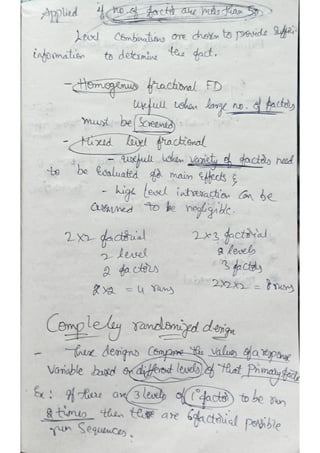 Applied if no. of factos are more than 5
Level Combinations are chosen to provide suffici-
information to determine the fact.
- Homogenus fractional FD
Usefull when large no. of factors
must be Screened
- Mixed level fractional
- usefull when variety of factors need
to be Evaluated for main effects &
- high level interaction can be
assumed to be negligible.
2x2 factorial 2x3 factorial
2 level 2 levels
2 factors 3 factors
2x2 = 4 runs 2x2x2 = 8 runs
Completely randomized design
- These designs Compare the values of a response
Variable based on different levels of that Primary factor
Ex: if there are 3 levels of 1° factor to be run
2 times then there are 6 factorial possible
run Sequences.